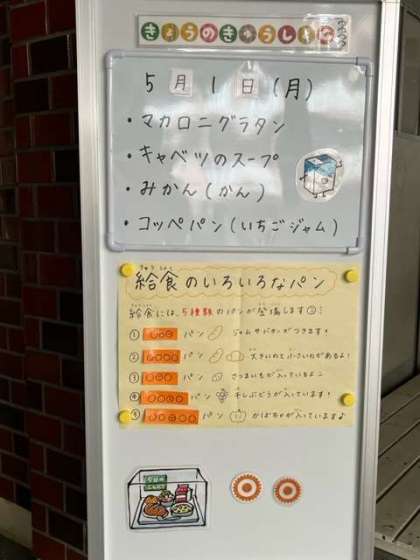 きょうのきゅうしょく
5月1日(月)
・マカロニグラタン
・キャベツのスープ
・みかん(かん)
・コッペパン(いちごジャム)
きゅうしょく
給食のいろいろなパン
給食には、5種類のパンが登場します
① ○○○パン ジャムやバターがつきます!
② ○○○○パン 大きいのと小さいのがあるよ!
③ ○○○パン さつまいもが入っているよ
④ ○○○○パン 干しぶどうが入っています!
⑤ ○○○○○パン かぼちゃが入っています♪